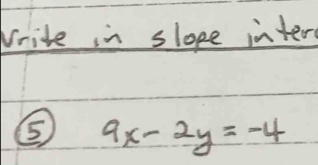 Write in slope inter
⑤ 9x - 2y = -4